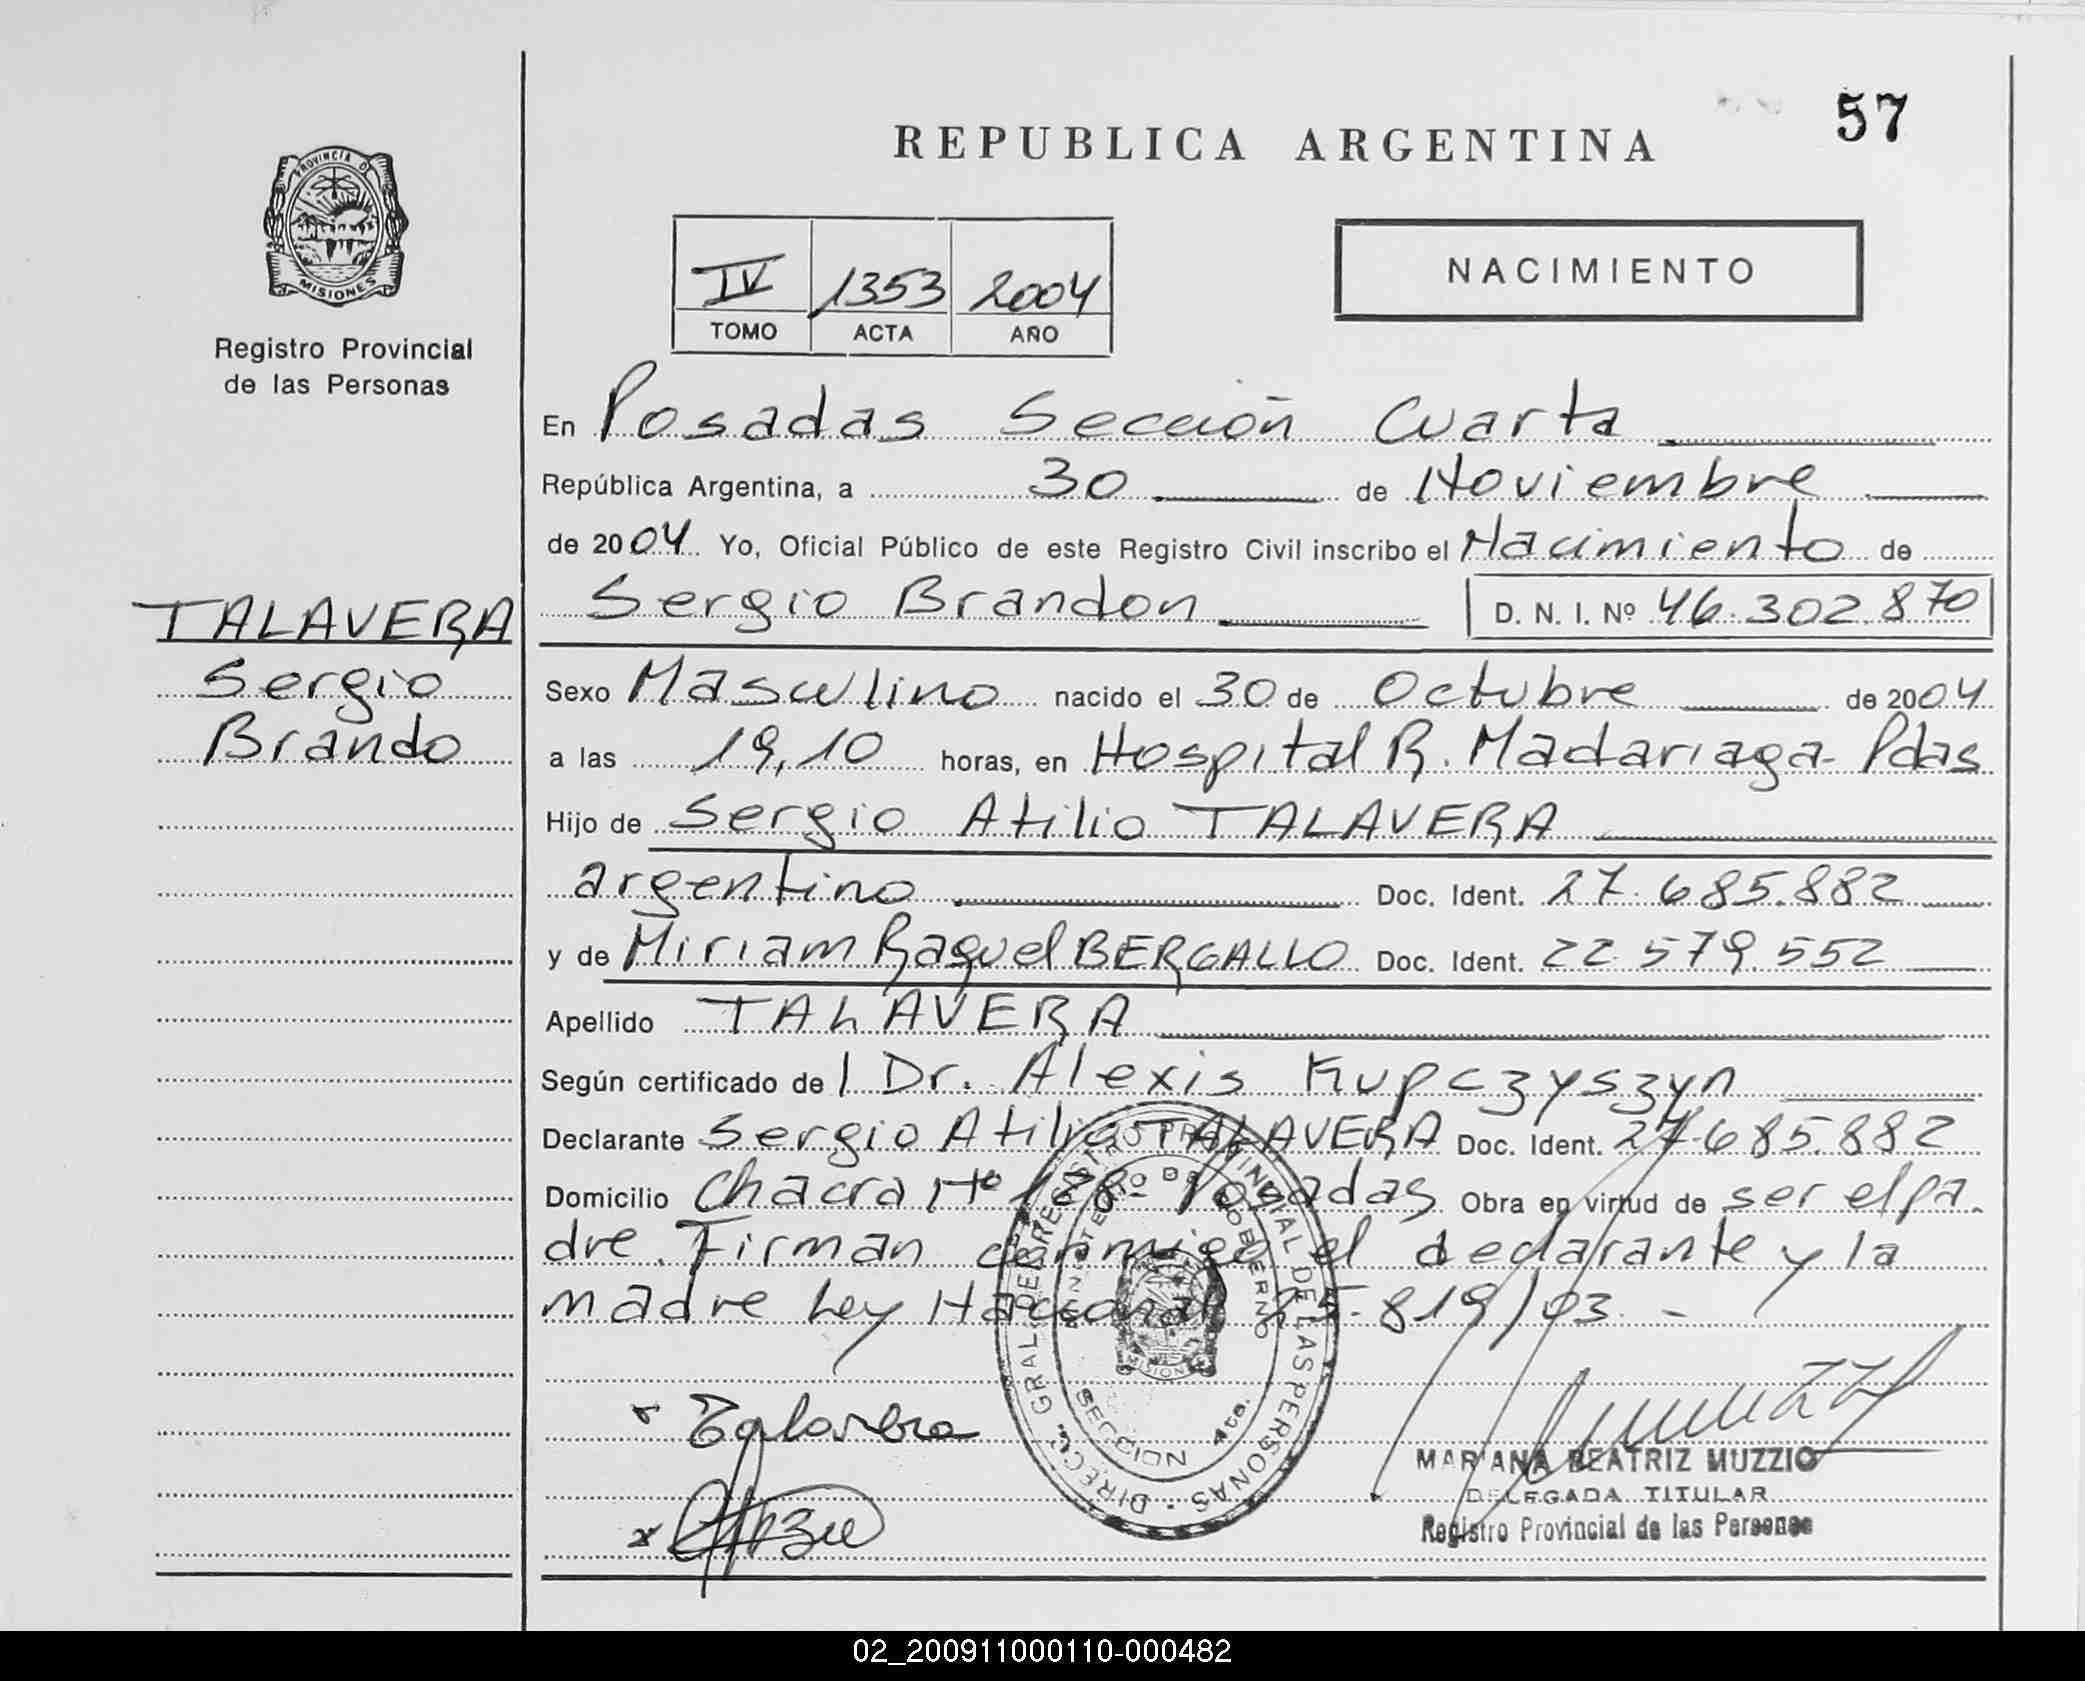 57
REPUBLICA ARGENTINA
PROVINCIA DE
MISIONES
Registro Provincial
de las Personas
NACIMIENTO
IV 1353 2004
TOMO ACTA AÑO
En Posadas Sección Cuarta
República Argentina, a 30 de Noviembre
de 2004 Yo, Oficial Público de este Registro Civil inscribo el Nacimiento de
Sergio Brandon D. N. I. Nº 46.302.870
TALAVERA
Sergio
Brando
Sexo Masculino nacido el 30 de Octubre de 2004
a las 19,10 horas, en Hospital R. Madariaga - Pdas
Hijo de Sergio Atilio TALAVERA
argentino Doc. Ident. 27.685.882
y de Miriam Raquel BERGALLO Doc. Ident. 22.579.552
Apellido TALAVERA
Según certificado de l Dr. Alexis Kupczyszyn
Declarante Sergio Atilio TALAVERA Doc. Ident. 27.685.882
Domicilio Chacra Nº 128- Posadas Obra en virtud de ser el pa-
dre. Firman conmigo el declarante y la
madre Ley Nacional 25.819/03. -
DIRECC. GRAL. DE REGISTRO PROVINCIAL DE LAS PERSONAS
MINISTERIO DE GOBIERNO
MISIONES
SECCION 4ta.
x Talavera
x
Muzzi
MARIANA BEATRIZ MUZZIO
DELEGADA TITULAR
Registro Provincial de las Personas
02_200911000110-000482